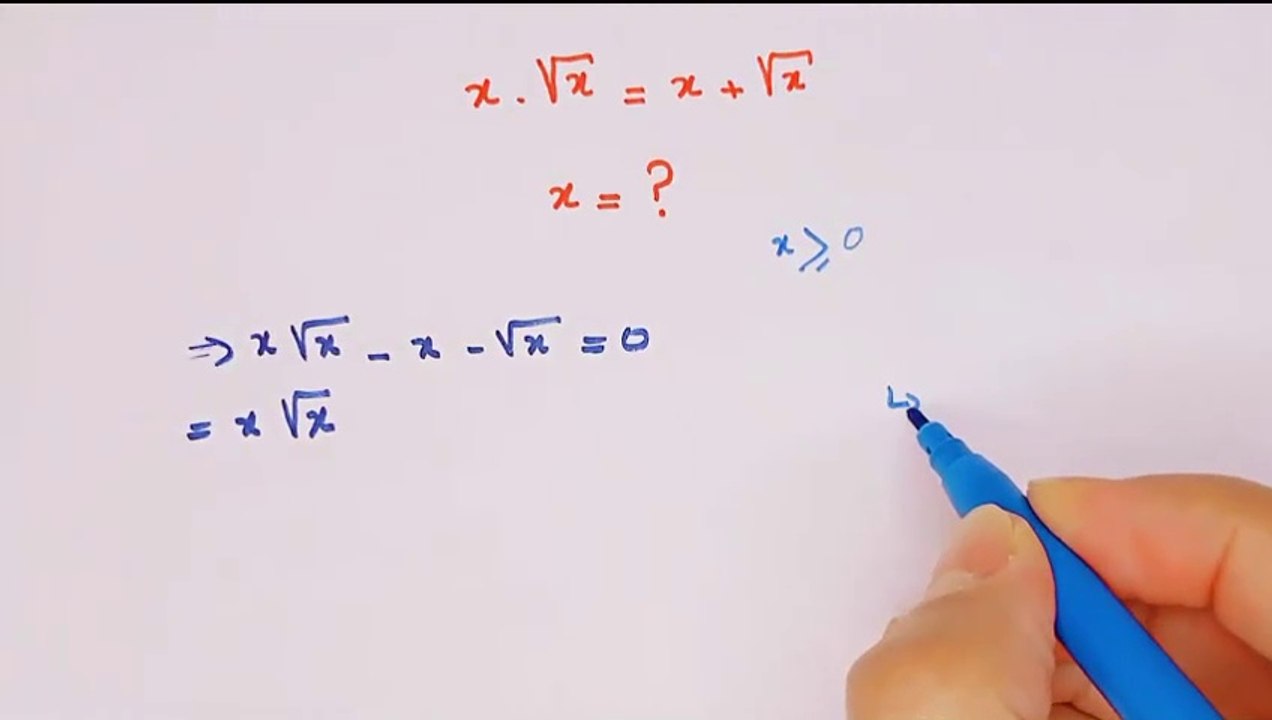 x . √x = x + √x
x = ?
x ⩾ 0
⇒ x √x - x - √x = 0
= x √x
↳